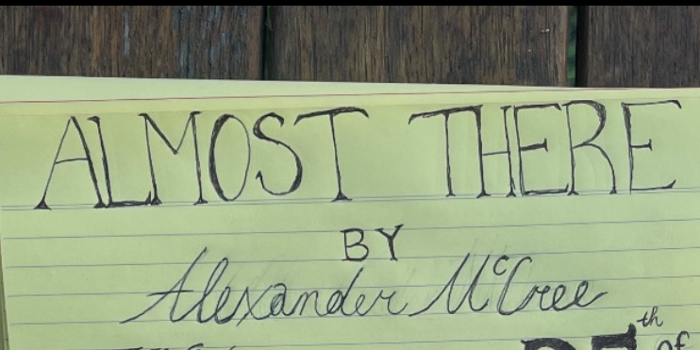 ALMOST THERE
BY
Alexander McCree
th
of